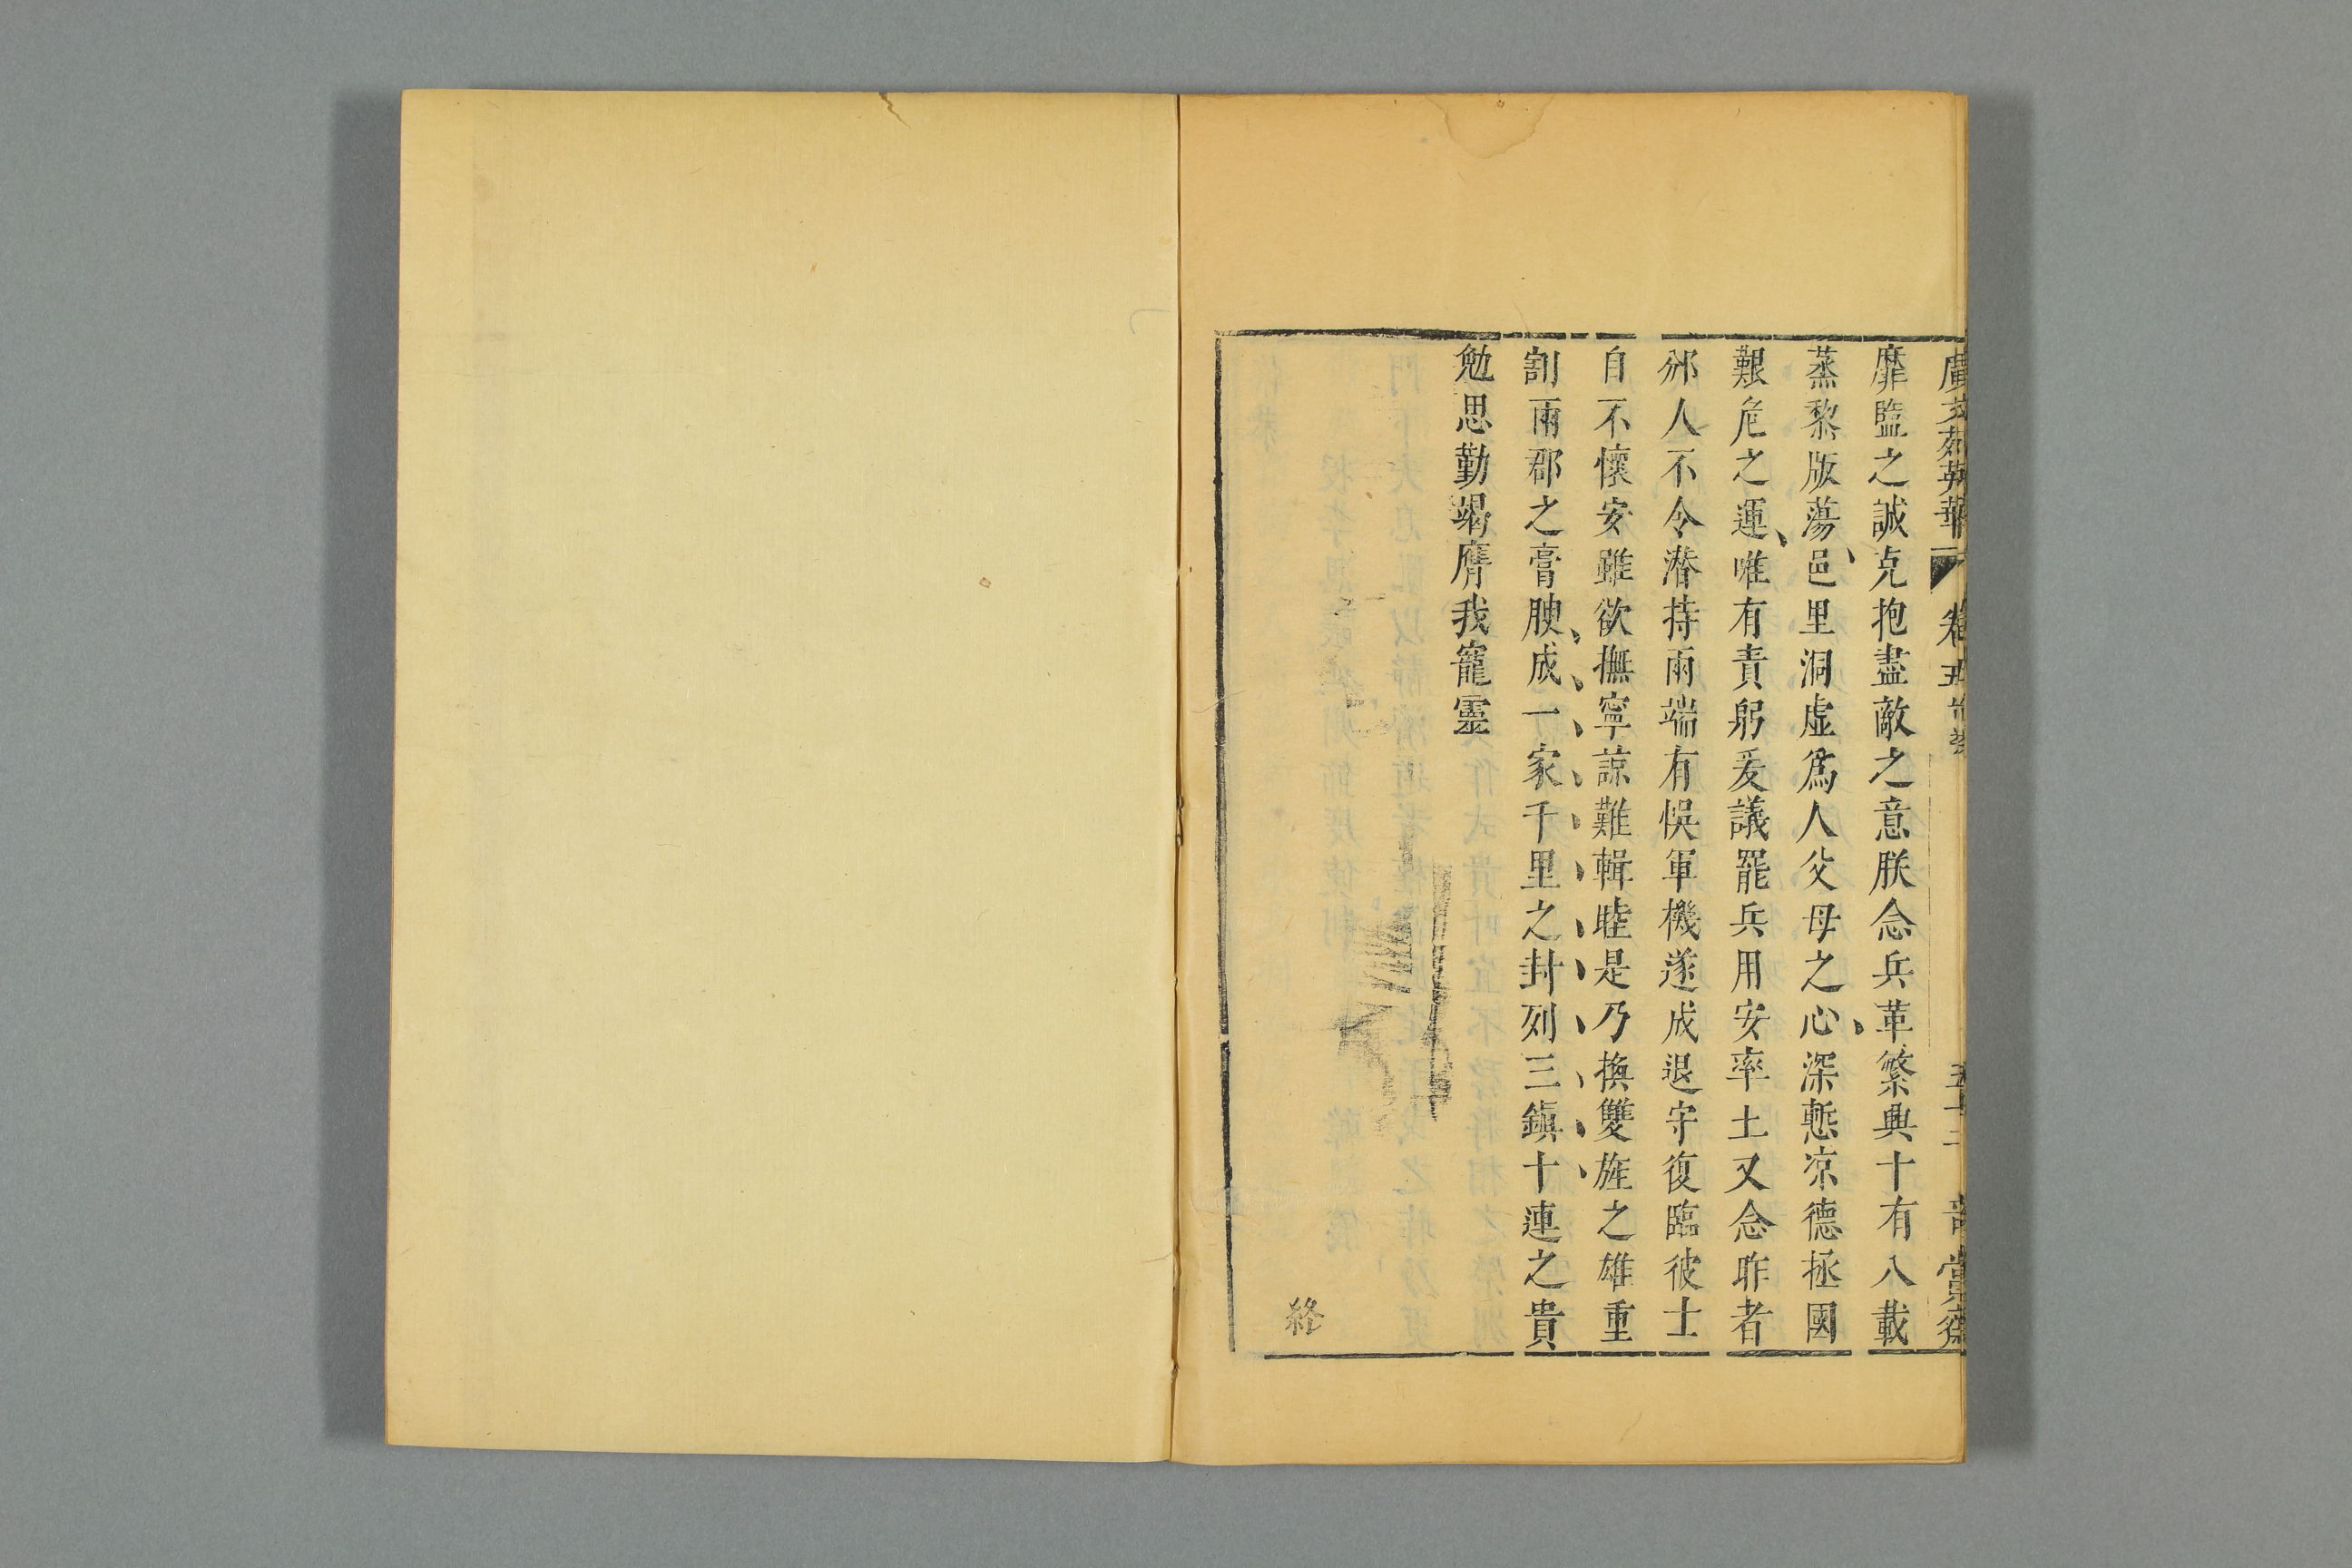 廣文苑英華 卷五 五十二 賞齋
靡盬之誠克抱盡敵之意朕念兵革繁興十有八載
蒸黎版蕩邑里洞虛爲人父母之心深慙凉德拯國
艱危之運唯有責躬爰議罷兵用安率土又念昨者
邠人不令潜持兩端有悞軍機遂成退守復臨彼士
自不懷安雖欲撫寧諒難輯睦是乃換雙旌之雄重
割兩郡之膏腴成一家千里之封列三鎮十連之貴
勉思勤竭膺我寵靈
終